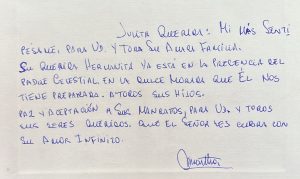 Junta Querida: Mi más senti
pesame, para Ud. y toda su amada familia.
Su querida hermanita ya está en la presencia del
Padre Celestial, en la dulce morada que Él nos
tiene preparada. A todos sus hijos.
Paz y aceptación a sus mandatos, para Ud. y todos
sus seres queridos. Que el Señor les cubra con
su Amor Infinito.
Martha